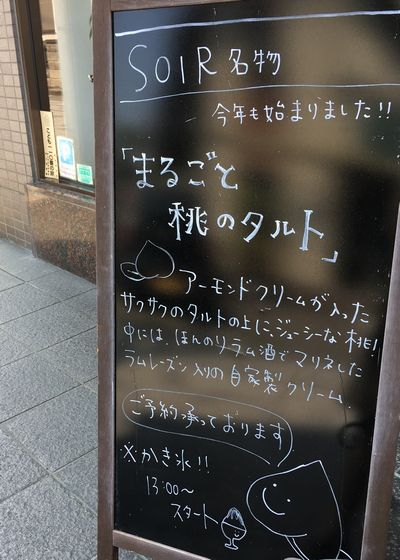 SOIR 名物
今年も始まりました!!
「まるごと
桃のタルト」
アーモンドクリームが入った
サクサクのタルトの上に、ジューシーな桃!
中には、ほんのりラム酒でマリネした
ラムレーズン入りの自家製クリーム.
ご予約承っております
※かき氷!!
13:00〜
スタート